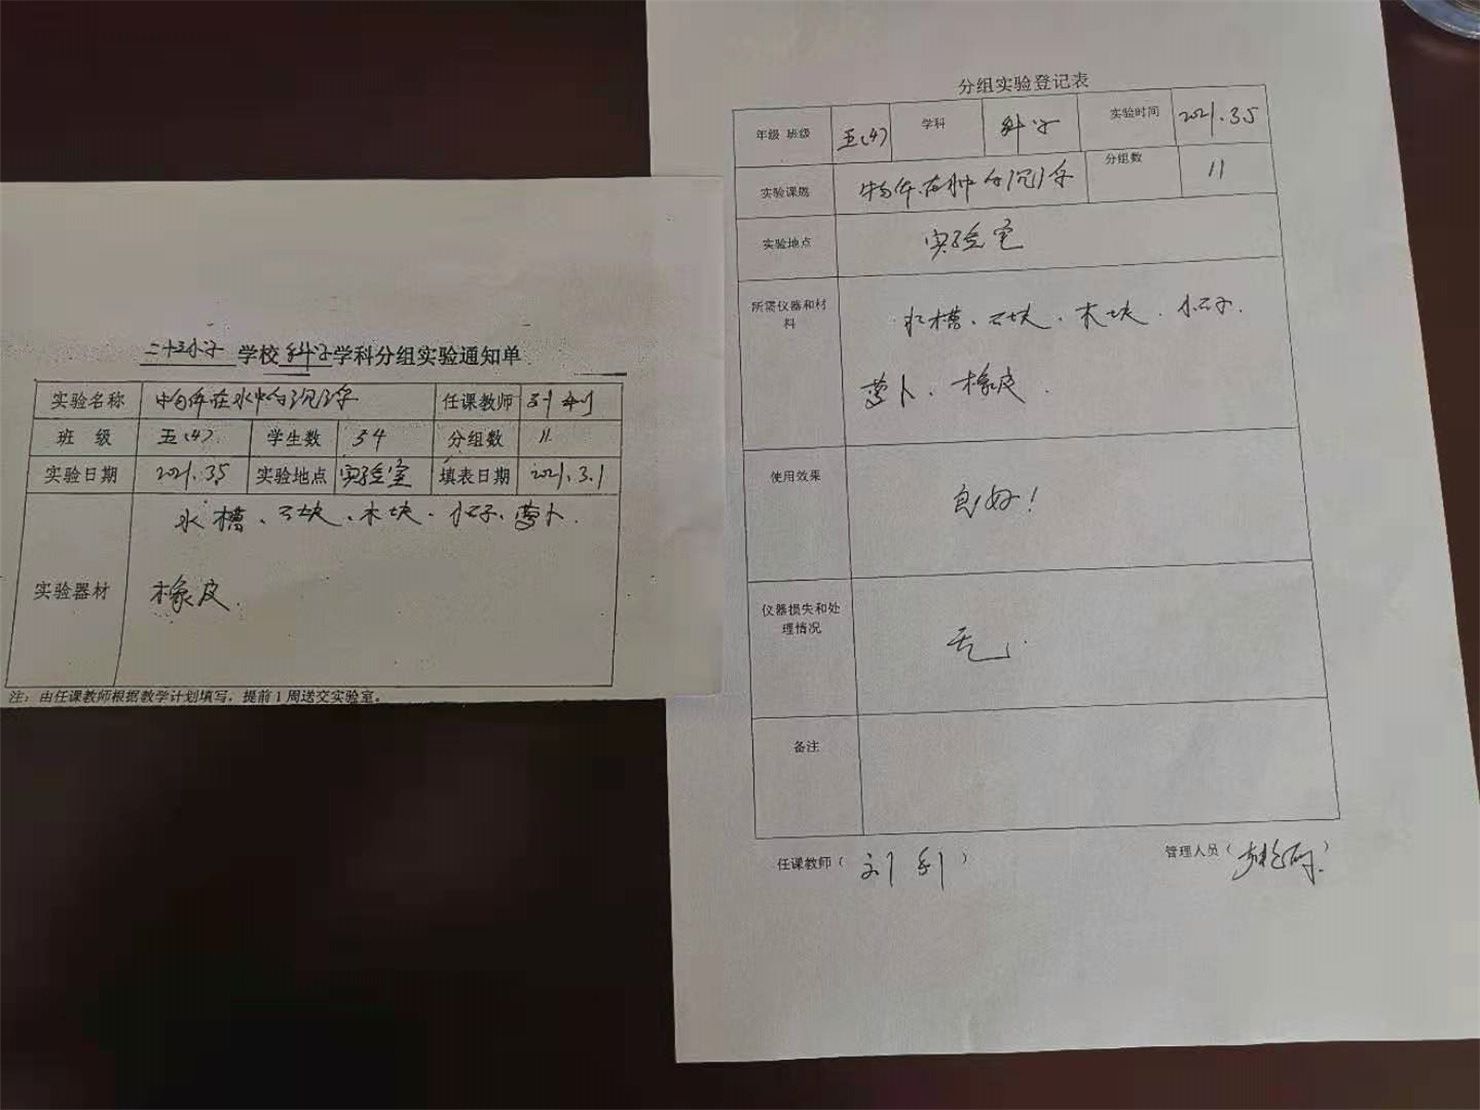 二十三小学 学校 科学 学科分组实验通知单
实验名称 物体在水中的沉浮 任课教师 刘利
班 级 五(4) 学生数 54 分组数 11
实验日期 2021.3.5 实验地点 实验室 填表日期 2021.3.1
实验器材 水槽、石块、木块、小石子、萝卜、
橡皮.
注：由任课教师根据教学计划填写，提前1周送交实验室。
分组实验登记表
年级 班级 五(4) 学科 科学 实验时间 2021.3.5
实验课题 物体在水中的沉浮 分组数 11
实验地点 实验室
所需仪器和材料 水槽、石块、木块、小石子、
萝卜、橡皮.
使用效果 良好！
仪器损失和处理情况 无.
备注
任课教师（刘利） 管理人员（ ）